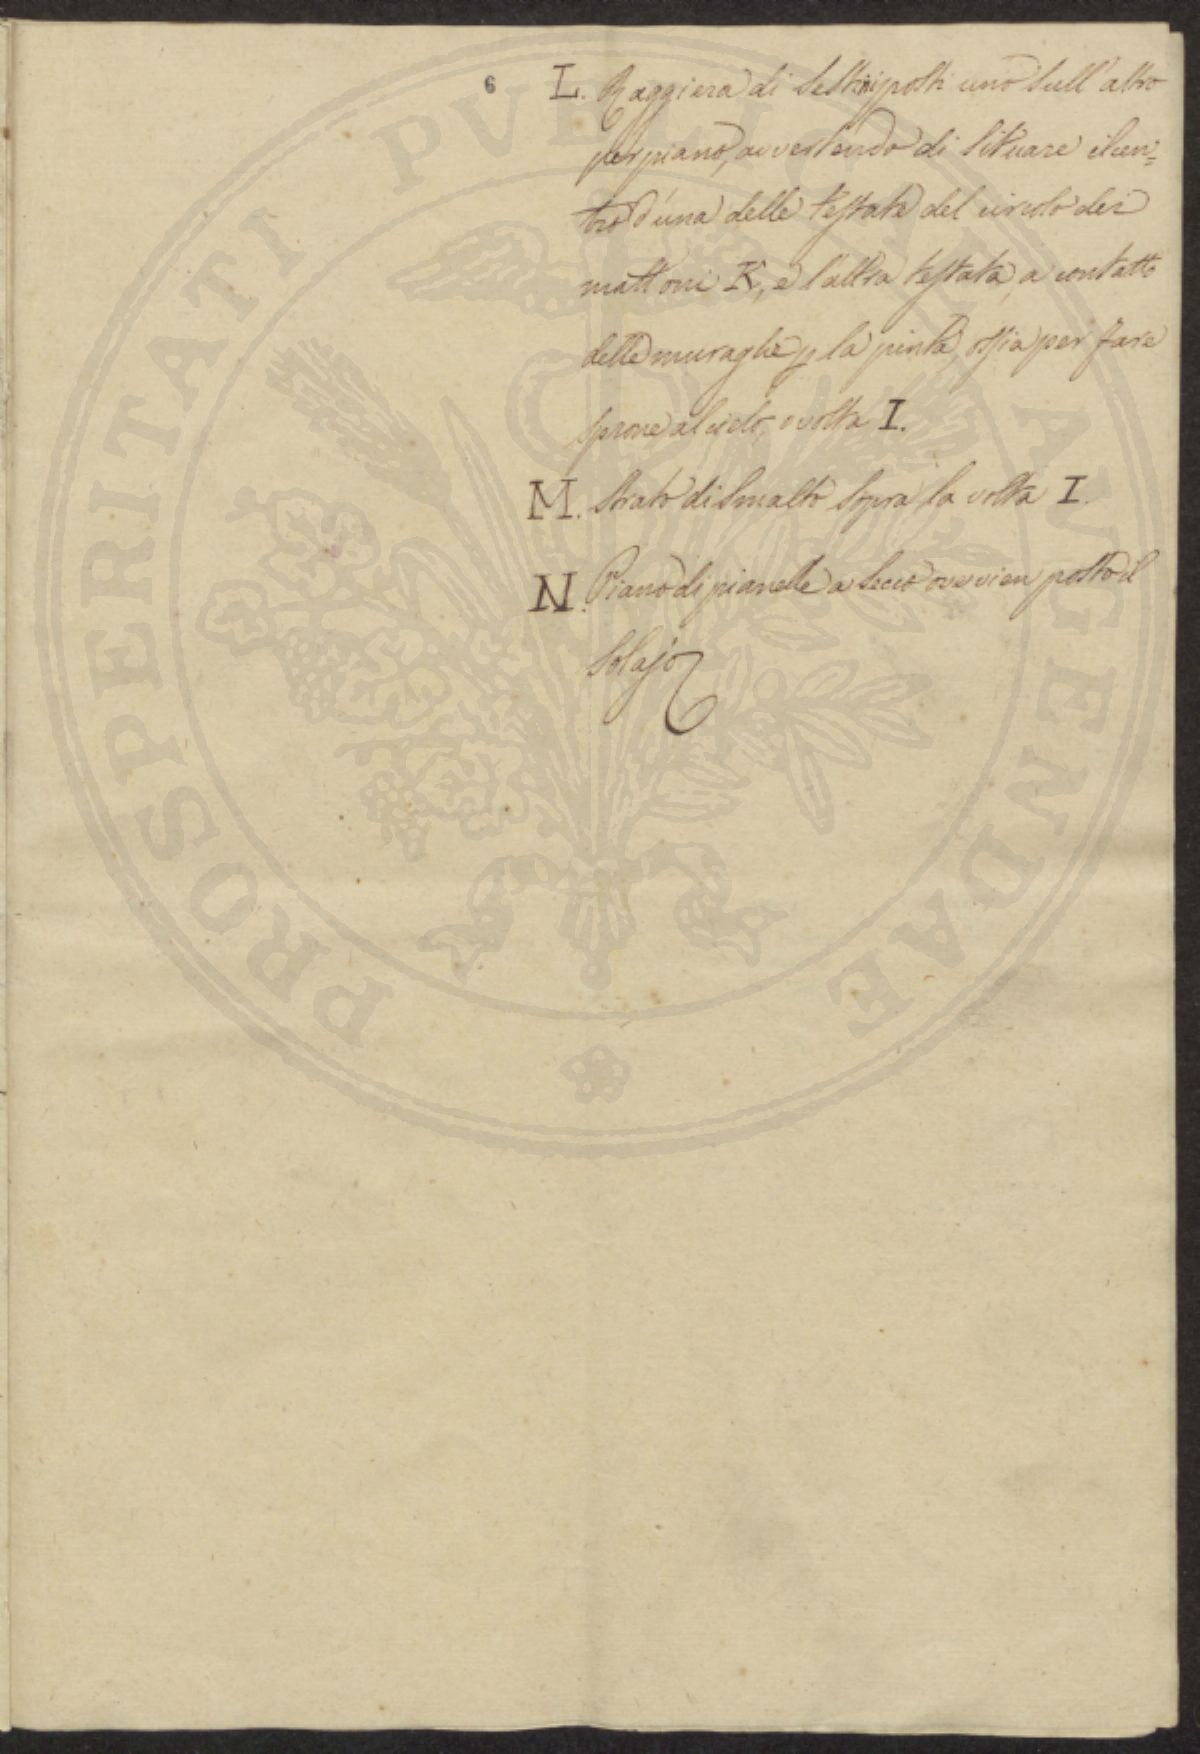 6 L. Raggiera di Sestini posti uno sull'altro
per piano, avvertendo di situare il cen=
tro d'una delle testate del circolo dei
mattoni K, e l'altra testata, a contatto
delle muraglie p la pinta, ossia per fare
sprone al cielo, o volta I.
M. Strato di Smalto sopra la volta I.
N. Piano di pianelle a secco ove vien posto il
Solajo
PROSPERITATI PVBLICAE AVGENDAE